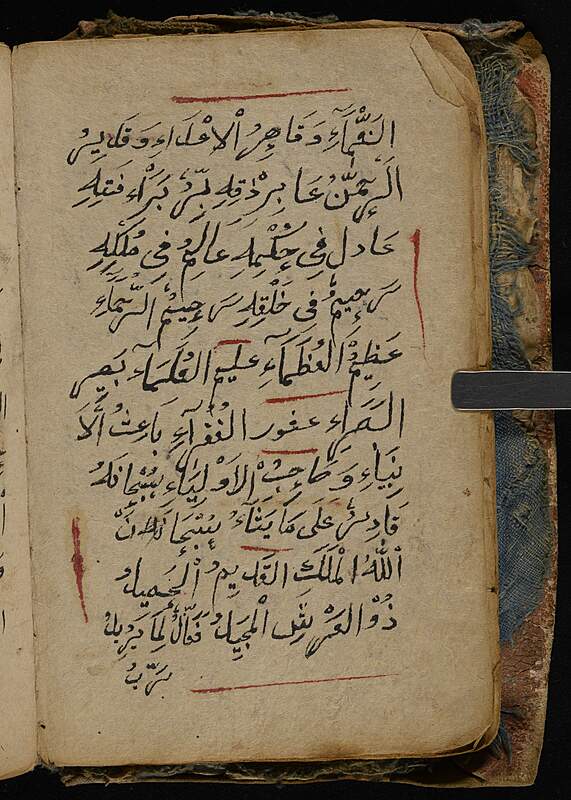 النَّعْمَاءِ وَقَاهِرُ الْاَعْدَاءِ وَقَدِيرُ
الرَّحْمٰنُ عَا بِرِزْقِهِ بِرُّ
عَادِل فِي حُكْمِهِ عَالِمٌ فِي مُلْكِهِ
رَحِيمٌ فِي خَلْقِهِ رَحِيمُ الرُّحَمَاءِ
عَظِيمُ الْعُظَمَاءِ عَلِيمُ العُلَمَاءِ بَصِر
البُصَرَاءِ غفور الْغُفَرَاءِ بَاعِثُ الْاَ
نْبِيَاءِ وَصَاحِبُ الْاَوْلِيَاءِ سُبْحَانَهُ
قَادِرٌ عَلَى مَا يَشَاءُ سُبْحَانَ
اللهُ الْمَلِكِ القَدِيمُ الْجَمِيلُ
ذُوْ الْعَرْشِ الْمَجِيدُ فَعَّالٌ لِمَا يُرِيدُ
رَبُّ